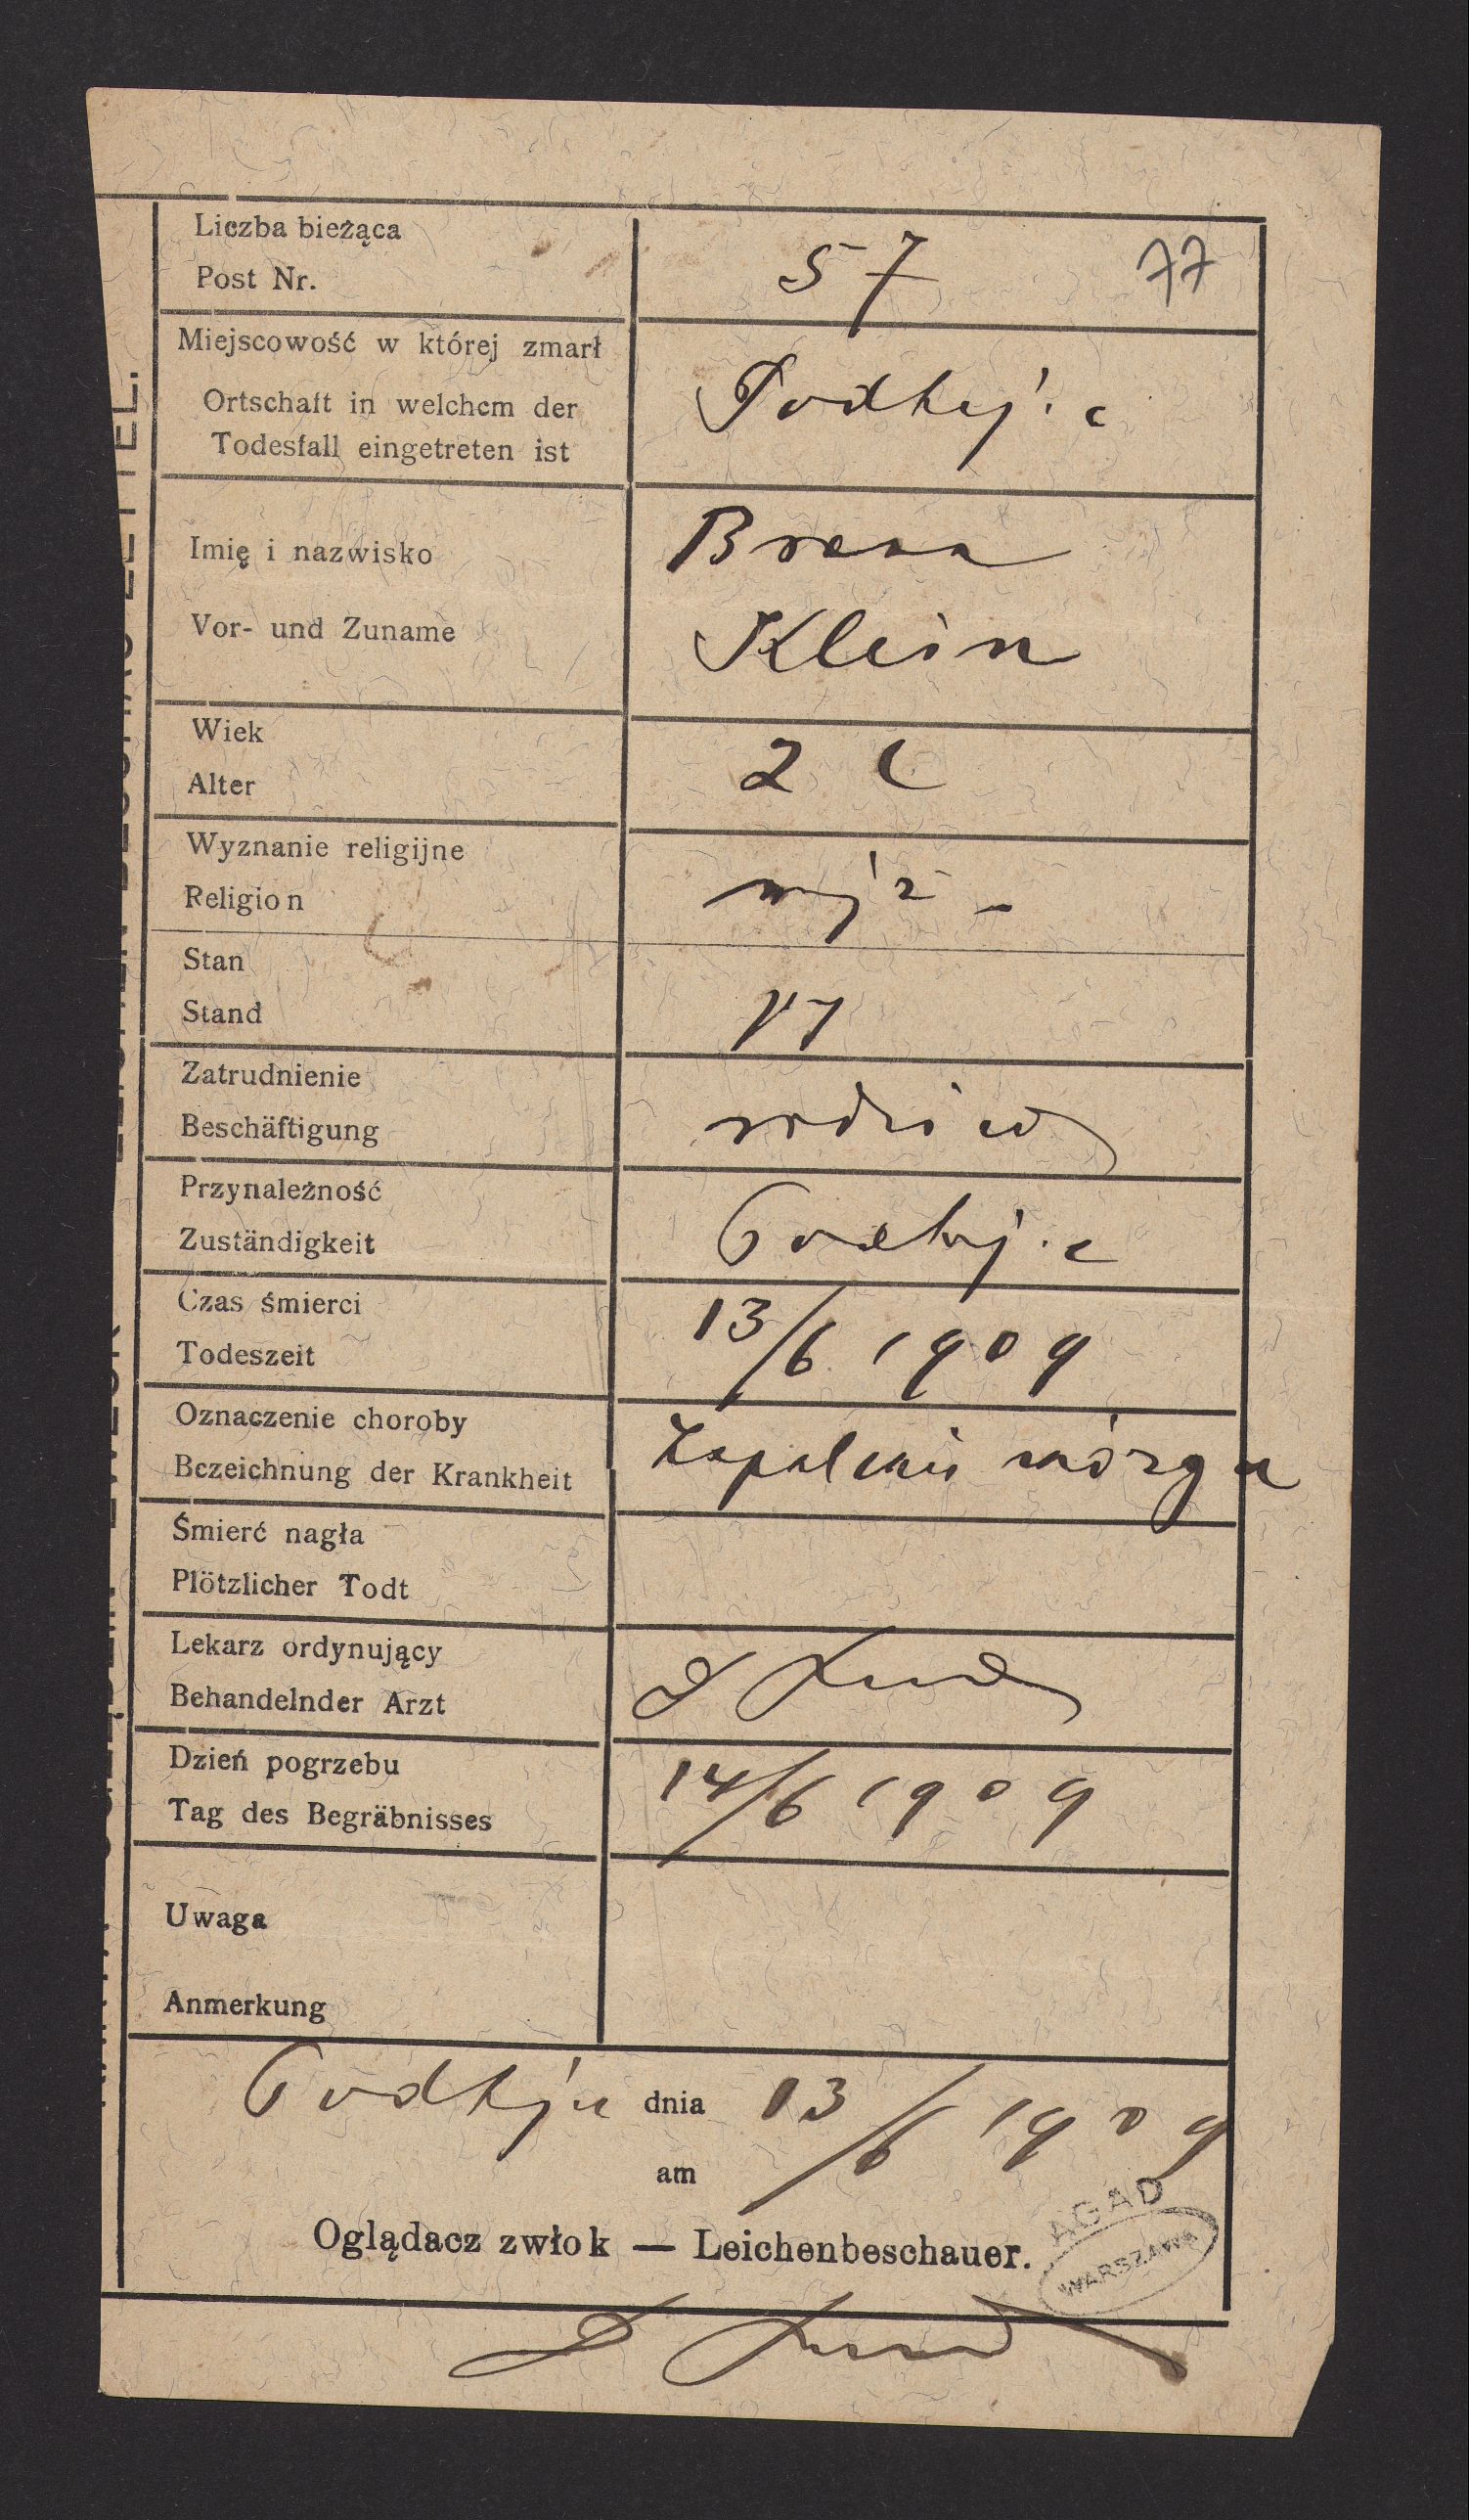 Liczba bieżąca
Post Nr.
57
77
Miejscowość w której zmarł
Ortschaft in welchem der
Todesfall eingetreten ist
Podhajce
Imię i nazwisko
Vor- und Zuname
Klein
Wiek
Alter
2
Wyznanie religijne
Religion
mojż
Stan
Stand
Zatrudnienie
Beschäftigung
rodziców
Przynależność
Zuständigkeit
Podhajce
Czas śmierci
Todeszeit
13/6 1909
Oznaczenie choroby
Bezeichnung der Krankheit
Zapalenie mózgu
Śmierć nagła
Plötzlicher Todt
Lekarz ordynujący
Behandelnder Arzt
Dzień pogrzebu
Tag des Begräbnisses
14/6 1909
Uwaga
Anmerkung
Podhajce dnia 13/6 1909
am
Oglądacz zwłok — Leichenbeschauer.
AGAD
WARSZAWA